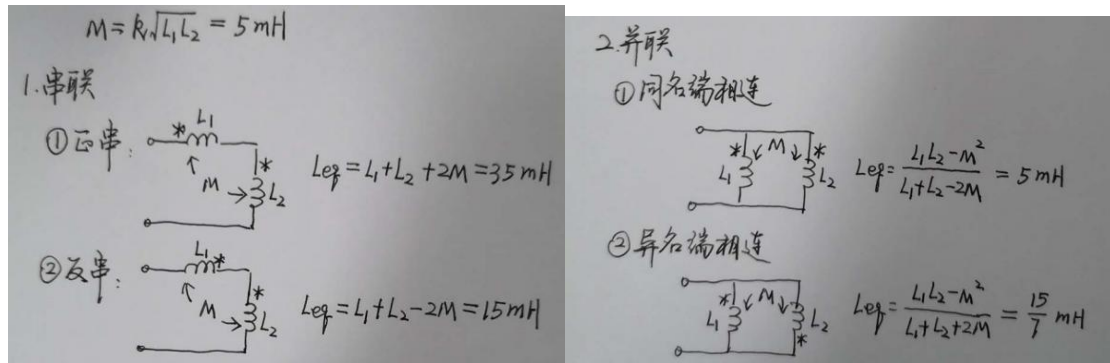 M = k√L₁L₂ = 5mH
1.串联
①正串:
* L₁
M
* L₂
Leq = L₁+L₂+2M = 35mH
②反串:
L₁ *
M
* L₂
Leq = L₁+L₂-2M = 15mH
2.并联
①同名端相连
* M *
L₁ L₂
Leq = (L₁L₂-M²)/(L₁+L₂-2M) = 5mH
②异名端相连
* M
L₁ L₂
*
Leq = (L₁L₂-M²)/(L₁+L₂+2M) = 15/7 mH